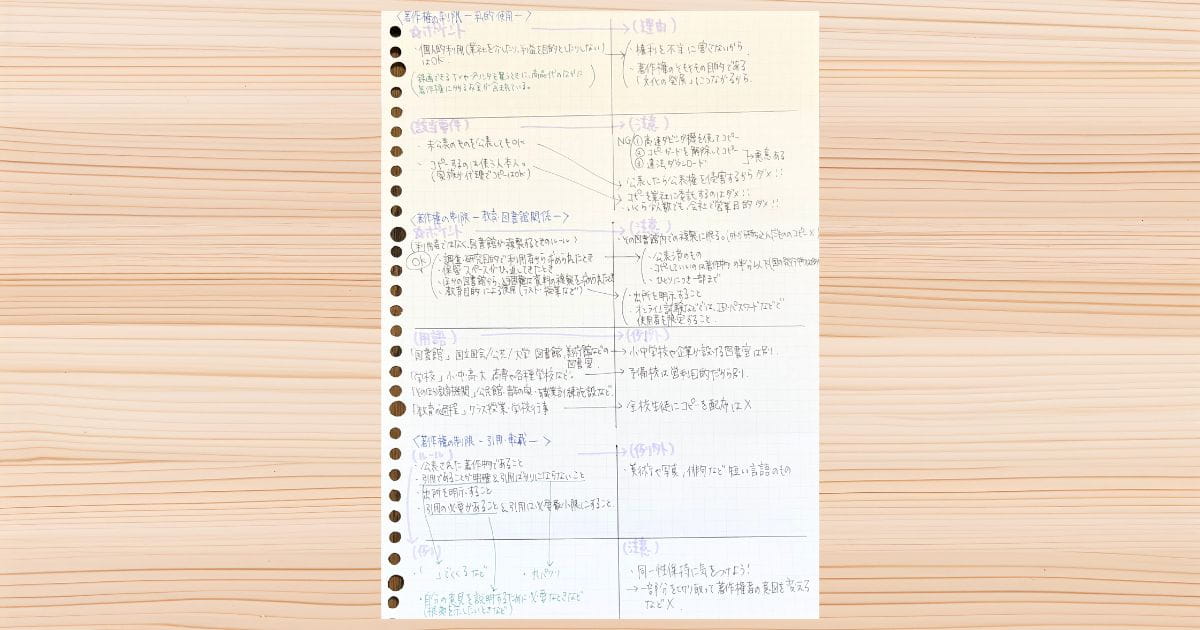 <著作権の制限 ー 私的使用 ー>
☆ポイント
(理由)
・個人的利用(業社を介したり、利益を目的としたりしない)
はOK.
・権利を不当に害さないから
・著作権のそもそもの目的である
「文化の発展」につながるから.
著作権にかかるお金が含まれている。
(該当事件)
(注意)
・未公表のものを公表してもOK
・コピーするのは使う人本人。
(家族が代理でコピーはOK)
NG ① 高速ダビング機を使ってコピー
② コピーガードを解除してコピー
③ 違法ダウンロード
→悪意ある
公表したら公表権を侵害するからダメ!!
コピーを業社に委託するのはダメ!!
いくら少人数でも、会社で営業目的ダメ!!
<著作権の制限 ー 教育・図書館関係 ー>
☆ポイント
(注意)
(利用者ではなく、図書館が複製するときのルール)
OK
・調査・研究目的で利用者から求められたとき
・保管スペースが
・ほかの図書館から、
・教育目的による使用(テスト・授業など)
・その図書館内での複製に限る。
・公表済のもの
・コピーしていいのは著作物の半分以下
・ひとりにつき一部まで
・出所を明示すること
・オンライン試験などでは、ID・パスワードなどで
使用者を限定すること.
(用語)
(例外)
「図書館」国立国会/公共/大学 図書館、美術館などの
図書室.
→小中学校や企業が設ける図書室は別.
「学校」小・中・高・大 高専や各種学校など。
→予備校は営利目的だから別.
公民館・
職業訓練施設など.
「教育の過程」クラス授業・学校行事
全校生徒にコピーを配布は×
<著作権の制限 ー 引用・転載 ー>
(ルール)
(例外)
・公表された著作物であること
・引用であることが明確&引用ばかりにならないこと
・出所を明示すること
・引用の必要があること&引用は必要最小限にすること.
・美術や写真、俳句など短い言語のもの
(例)
(注意)
・「 」でくくるなど
・丸パクリ
・自分の意見を説明するために必要なときなど
(根拠を示したいときなど)
・同一性保持に気をつけよう!
→一部分を切り取って著作権者の意図を変える
など×